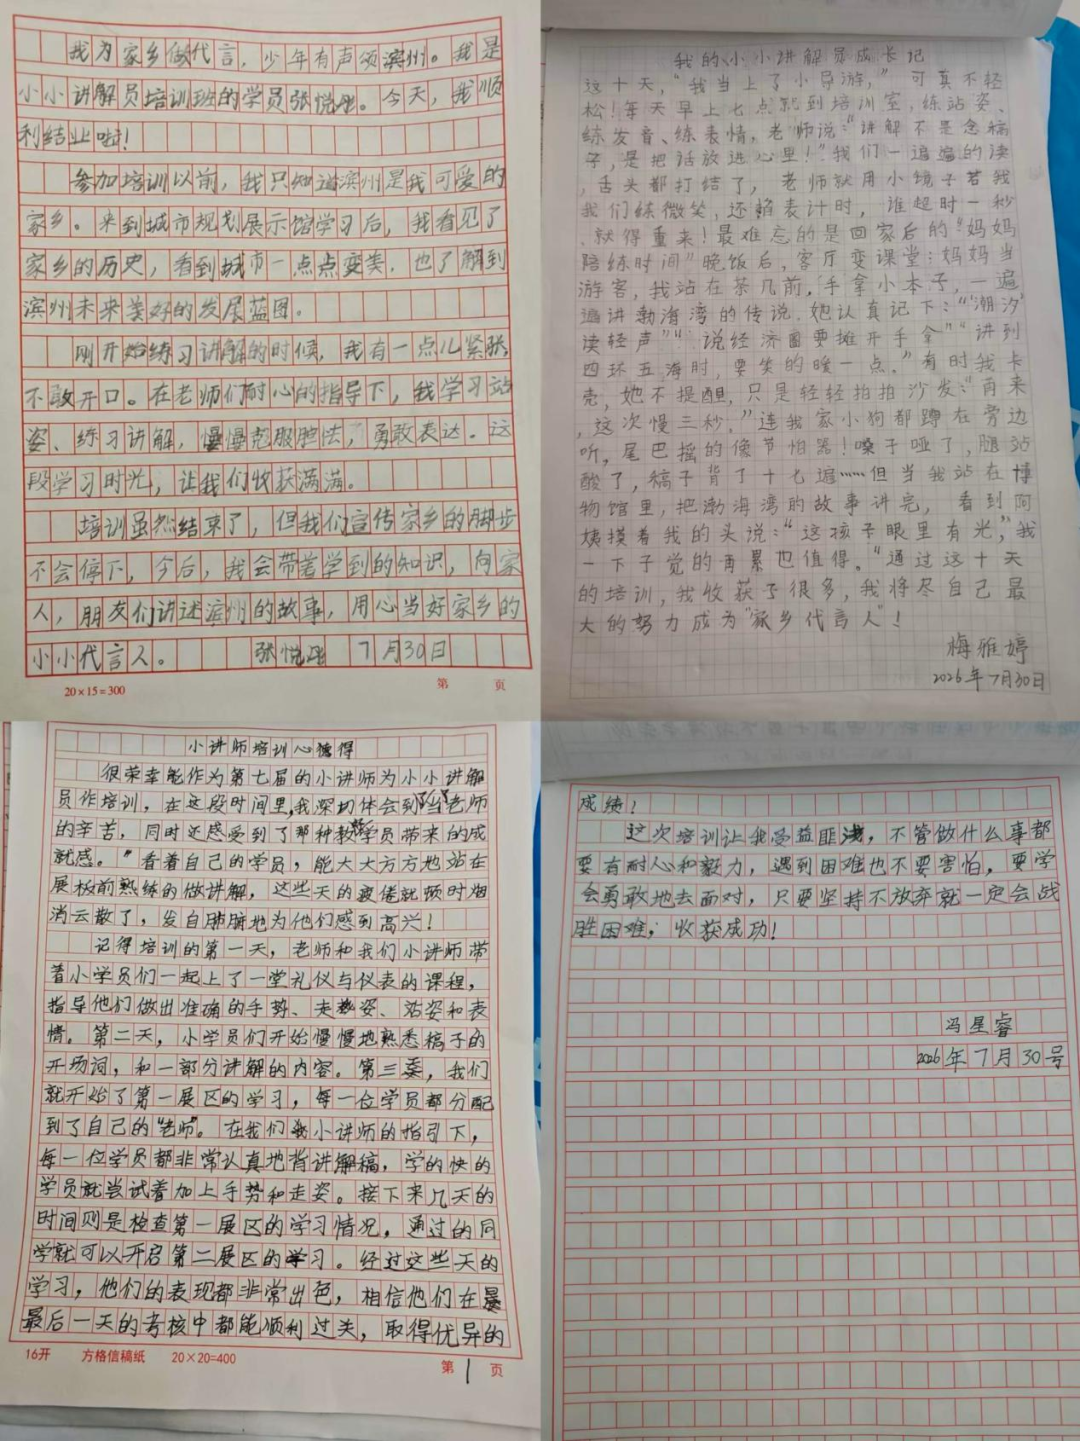 我为家乡做代言，少年有声颂滨州。我是
小小讲解员培训班的学员张悦。今天，我顺
利结业啦！
参加培训以前，我只知道滨州是我可爱的
家乡。来到城市规划展示馆学习后，我看见了
家乡的历史，看到城市一点点变美，也了解到
滨州未来美好的发展蓝图。
刚开始练习讲解的时候，我有一点儿紧张
不敢开口。在老师们耐心的指导下，我学习站
姿、练习讲解，慢慢克服胆怯，勇敢表达。这
段学习时光，让我们收获满满。
培训虽然结束了，但我们宣传家乡的脚步
不会停下，今后，我会带着学到的知识，向家
人，朋友们讲述滨州的故事，用心当好家乡的
小小代言人。 张悦 7月30日
20×15=300 第 页
我的小小讲解员成长记
这十天，“我当上了小导游，”可真不轻
松！每天早上七点就到培训室，练站姿、
练发音、练表情，老师说：“讲解不是念稿
子，是把话放进心里！”我们一遍遍的读
，舌头都打结了，老师就用小镜子若我
我们练微笑，还掐表计时，谁超时一秒
就得重来！最难忘的是回家后的“妈妈
陪练时间”晚饭后，客厅变课堂：妈妈当
游客，我站在茶几前，手拿小本子，一遍
遍讲渤海湾的传说，她认真记下：“‘潮汐’
读轻声”“说经济圈要摊开手拿”“讲到
四环五海时，要笑的暖一点。”有时我卡
壳，她不提醒，只是轻轻拍拍沙发：“再来
，这次慢三秒。”连我家小狗都蹲在旁边
听，尾巴摇的像节拍器！嗓子哑了，腿站
酸了，稿子背了十七遍……但当我站在博
物馆里，把渤海湾的故事讲完，看到阿
姨摸着我的头说：“这孩子眼里有光”，我
一下子觉的再累也值得。“通过这十天
的培训，我收获了很多，我将尽自己最
大的努力成为“家乡代言人”！
梅雅婷
2026年7月30日
小讲师培训心得
很荣幸能作为第七届的小讲师为小小讲解
员作培训，在这段时间里，我深切体会到了当老师
的辛苦，同时还感受到了那种教学员带来的成
就感。”看着自己的学员，能大大方方地站在
展板前熟练的做讲解，这些天的疲倦就顿时烟
消云散了，发自肺腑地为他们感到高兴！
记得培训的第一天，老师和我们小讲师带
着小学员们一起上了一堂礼仪与仪表的课程，
指导他们做出准确的手势、走姿、站姿和表
情。第二天，小学员们开始慢慢地熟悉稿子的
开场词，和一部分讲解的内容。第三天，我们
就开始了第一展区的学习，每一位学员都分配
到了自己的“老师”。在我们小讲师的指引下，
每一位学员都非常认真地背讲解稿，学的快的
学员就尝试着加上手势和走姿。接下来几天的
时间则是检查第一展区的学习情况，通过的同
学就可以开启第二展区的学习。经过这些天的
学习，他们的表现都非常出色，相信他们在
最后一天的考核中都能顺利过关，取得优异的
16开 方格信稿纸 20×20=400 第 1 页
成绩！
这次培训让我受益匪浅，不管做什么事都
要有耐心和毅力，遇到困难也不要害怕，要学
会勇敢地去面对，只要坚持不放弃就一定会战
胜困难，收获成功！
冯星睿
2026年7月30号